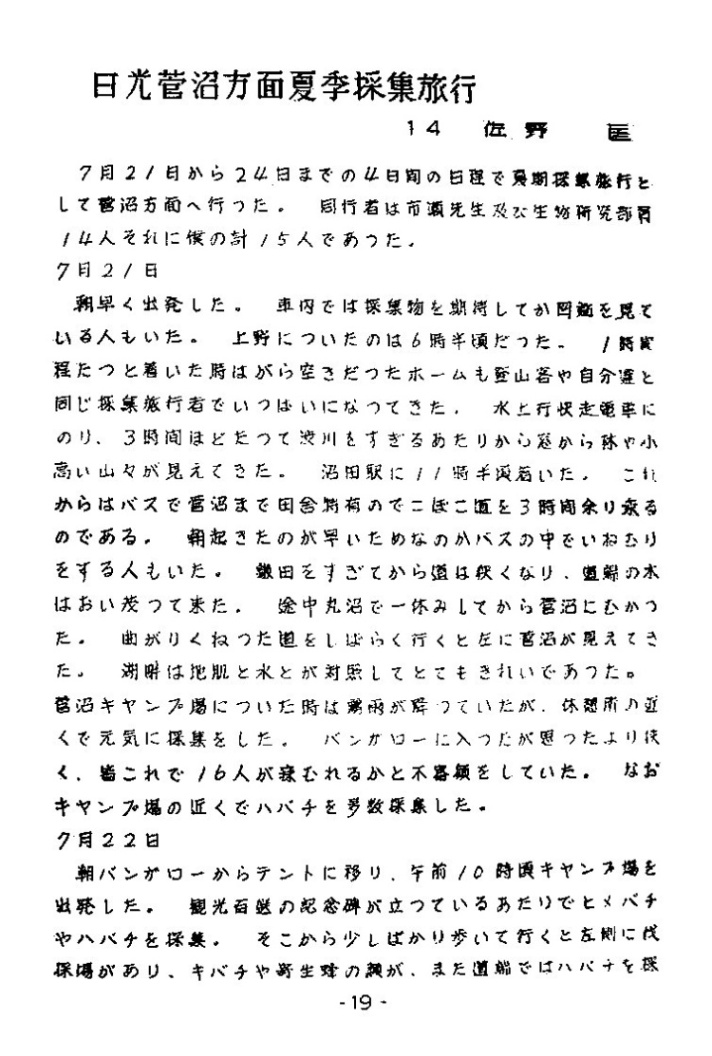 日光菅沼方面夏季採集旅行
14 佐野 匡
7月21日から24日までの4日間の日程で夏期採集旅行と
して菅沼方面へ行つた。 同行者は市瀬先生及び生物研究部員
14人それに僕の計15人であつた。
7月21日
朝早く出発した。 車内では採集物を期待してか図鑑を見て
いる人もいた。 上野についたのは6時半頃だつた。 1時間
程たつと着いた時はがら空きだつたホームも登山客や自分達と
同じ採集旅行者でいつぱいになつてきた。 水上行快走電車に
のり、3時間ほどたつて渋川をすぎるあたりから窓から林や小
高い山々が見えてきた。 沼田駅に11時半頃着いた。 これ
からはバスで菅沼まで田舎特有のでこぼこ道を3時間余り乗る
のである。 朝起きたのが早いためなのかバスの中でいねむり
をする人もいた。 鎌田をすぎてから道は狭くなり、道端の木
はおい茂つて来た。 途中丸沼で一休みしてから菅沼にむかつ
た。 曲がりくねつた道をしばらく行くと左に菅沼が見えてき
た。 湖畔は地肌と水とが対照してとてもきれいであつた。
菅沼キヤンプ場についた時は雨が降つていたが、休憩所の近
くで元気に採集をした。 バンガローに入つたが思つたより狭
く、皆これで16人が寝むれるかと不審顔をしていた。 なお
キヤンプ場の近くでハバチを多数採集した。
7月22日
朝バンガローからテントに移り、午前10時頃キヤンプ場を
出発した。 観光百選の記念碑が立つているあたりでヒメバチ
やハバチを採集。 そこから少しばかり歩いて行くと左側に伐
採場があり、キバチや寄生蜂の類が、また道端ではハバチを採
-19-